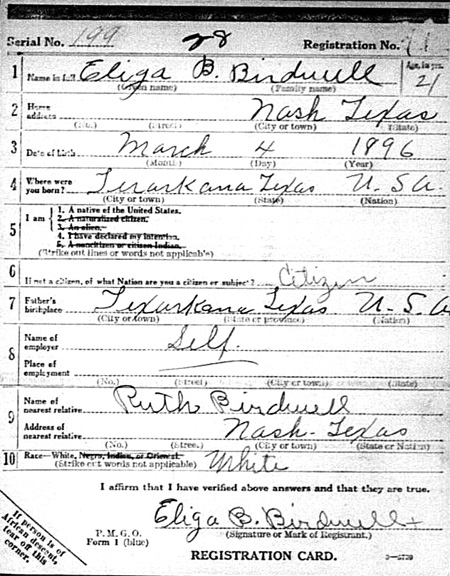 Serial No. 199 28 Registration No. 71
1 Name in full Eliga B. Birdwell Age, in yrs. 21
(Given name) (Family name)
2 Home address Nash Texas
(No.) (Street) (City or town) (State)
3 Date of birth March 4 1896
(Month) (Day) (Year)
4 Where were you born? Texarkana Texas U. S. A.
(City or town) (State) (Nation)
5 I am
1. A native of the United States.
2. A naturalized citizen.
3. An alien.
4. I have declared my intention.
5. A noncitizen or citizen Indian.
(Strike out lines or words not applicable)
6 If not a citizen, of what Nation are you a citizen or subject? Citizen
7 Father's birthplace Texarkana Texas U. S. A
(City or town) (State or province) (Nation)
8 Name of employer Self.
Place of employment
(No.) (Street) (City or town) (State)
9 Name of nearest relative Ruth Birdwell
Address of nearest relative Nash - Texas
(No.) (Street) (City or town) (State or Nation)
10 Race—White, Negro, Indian, or Oriental. White
(Strike out words not applicable)
I affirm that I have verified above answers and that they are true.
Eliga B. Birdwell
P. M. G. O.
Form 1 (blue)
(Signature or Mark of Registrant.)
REGISTRATION CARD.
If person is of
African descent,
tear off this
corner.